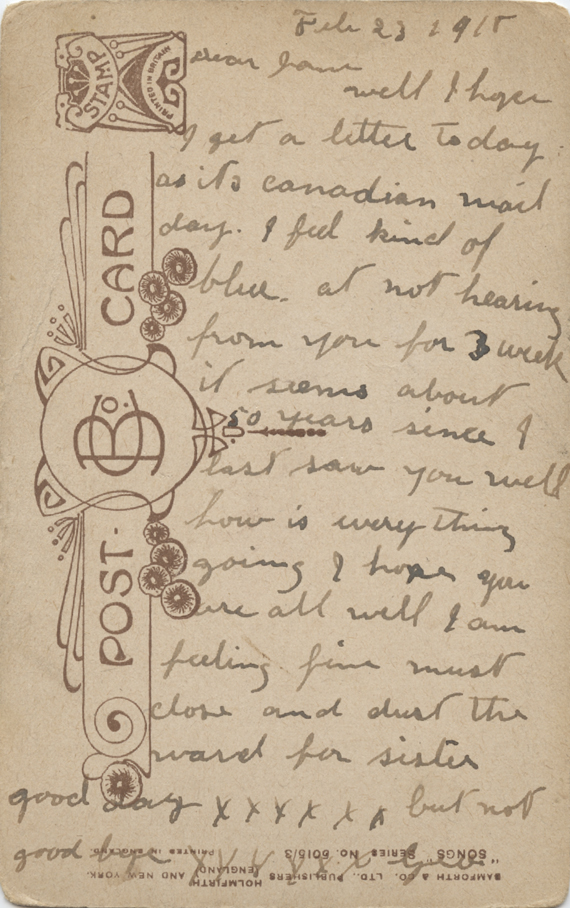 Feb 23 1918
dear
well I hope
I get a letter today
as its canadian mail
day. I feel kind of
blue. at not hearing
from you for 3 week
it seems about
50 years since I
last saw you well
how is every thing
going I hope you
are all well I am
feeling fine must
close and dust the
ward for sister
good day x x x x x x but not
good bye x x x x x x x
STAMP
PRINTED IN BRITAIN
POST-CARD
B & Co.
BAMFORTH & CO. LTD., PUBLISHERS HOLMFIRTH (ENGLAND) AND NEW YORK.
"SONGS" SERIES NO. 5015/3 PRINTED IN ENGLAND.